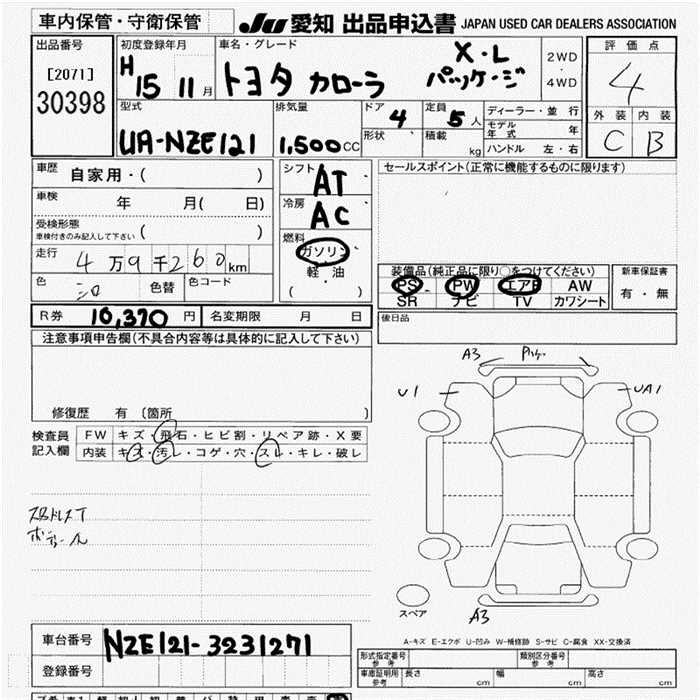 車内保管・守衛保管
JU 愛知 出品申込書 JAPAN USED CAR DEALERS ASSOCIATION
出品番号
[2071]
30398
初度登録年月
H 15 11 月
車名・グレード
トヨタ カローラ
X・L
パッケージ
2WD
・
4WD
評価点
4
外装 内装
C B
型式
UA-NZE121
排気量
1,500 CC
ドア 4
形状
定員 5 人
積載 kg
ディーラー・並 行
モデル年式 年
ハンドル 左・右
車歴
自家用・( )
車検
年 月( 日)
受検形態
車検付きのみ記入して下さい ( )
走行
4万9千260km
色 シロ 色替 色コード
シフト
AT
冷房
AC
燃料
ガソリン
・
軽 油
( )
セールスポイント(正常に機能するものに限ります)
装備品(純正品に限り○をつけてください)
PS PW エアB AW
SR ナビ TV カワシート
新車保証書
有・無
後日品
R券 10,370 円 名変期限 月 日
注意事項申告欄(不具合内容等は具体的に記入して下さい)
修復歴 有 〔箇所 〕
検査員
記入欄
FW キズ・飛石・ヒビ割・リペア跡・X要
内装 キズ・汚レ・コゲ・穴・スレ・キレ・破レ
A3
U1
UA1
A3
スペア
A-キズ E-エクボ U-凹み W-補修跡 S-サビ C-腐食 XX-交換済
車台番号 NZE121-3231271
登録番号
形式指定番号
参 考
類別区分番号
参 考
車庫証明用
参 考
長さ cm 幅 cm 高さ cm